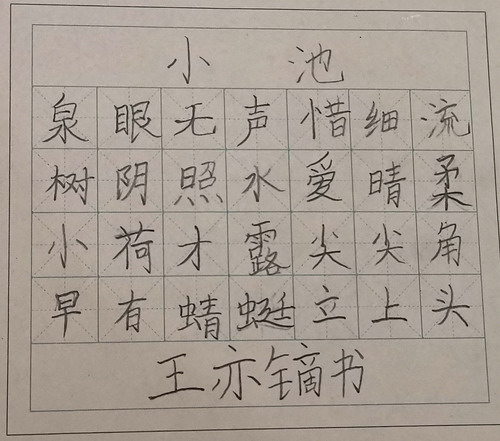 小池
泉眼无声惜细流
树阴照水爱晴柔
小荷才露尖尖角
早有蜻蜓立上头
王亦镝书